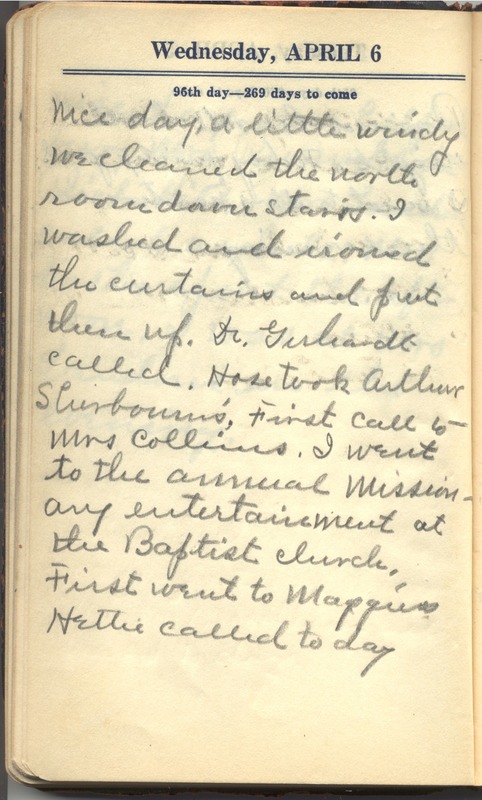 Wednesday, APRIL 6
96th day—269 days to come
Nice day, a little windy
we cleaned the north
room down stairs. I
washed and ironed
the curtains and put
them up. Dr. Gerhardt
called. Hose took Arthur
Sherbourn's, First call to
Mrs Collins. I went
to the annual Mission-
ary entertainment at
the Baptist church,
First went to Maggies
Hettie called to day